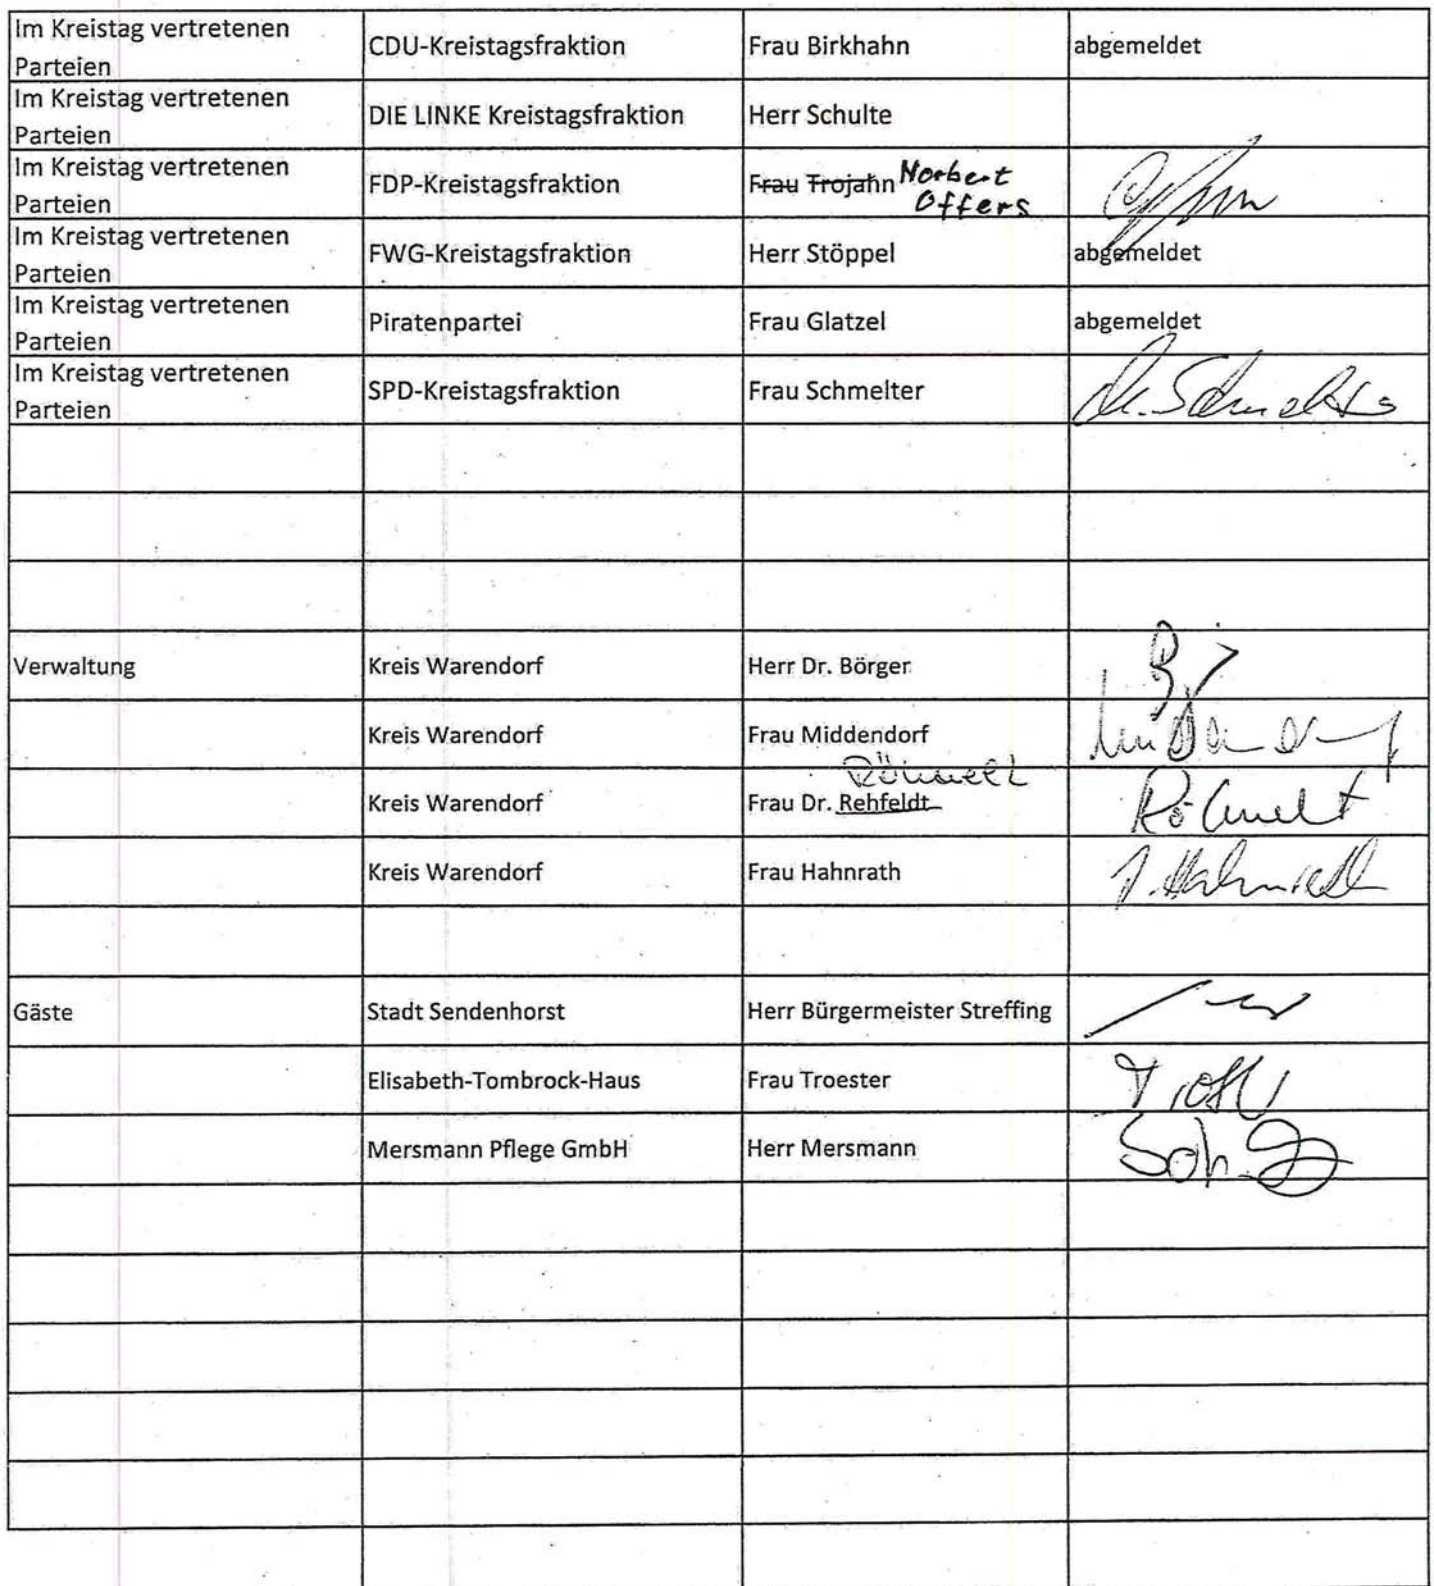 Im Kreistag vertretenen
Parteien
CDU-Kreistagsfraktion
Frau Birkhahn
abgemeldet
Im Kreistag vertretenen
Parteien
DIE LINKE Kreistagsfraktion
Herr Schulte
Im Kreistag vertretenen
Parteien
FDP-Kreistagsfraktion
Frau Trojahn Norbert
Offers
Im Kreistag vertretenen
Parteien
FWG-Kreistagsfraktion
Herr Stöppel
abgemeldet
Im Kreistag vertretenen
Parteien
Piratenpartei
Frau Glatzel
abgemeldet
Im Kreistag vertretenen
Parteien
SPD-Kreistagsfraktion
Frau Schmelter
Verwaltung
Kreis Warendorf
Herr Dr. Börger
Kreis Warendorf
Frau Middendorf
Kreis Warendorf
Frau Dr. Rehfeldt
Kreis Warendorf
Frau Hahnrath
Gäste
Stadt Sendenhorst
Herr Bürgermeister Streffing
Elisabeth-Tombrock-Haus
Frau Troester
Mersmann Pflege GmbH
Herr Mersmann